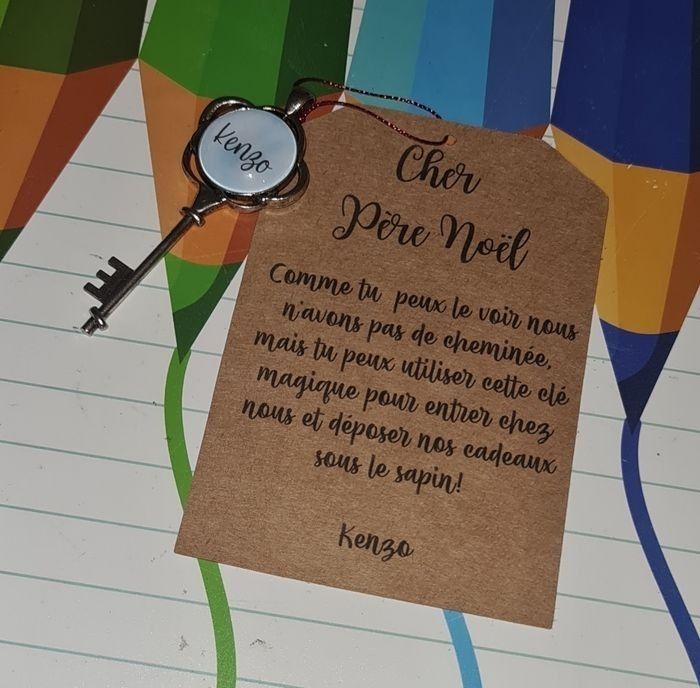 Kenzo
Cher
Père Noël
Comme tu peux le voir nous
n'avons pas de cheminée,
mais tu peux utiliser cette clé
magique pour entrer chez
nous et déposer nos cadeaux
sous le sapin!
Kenzo